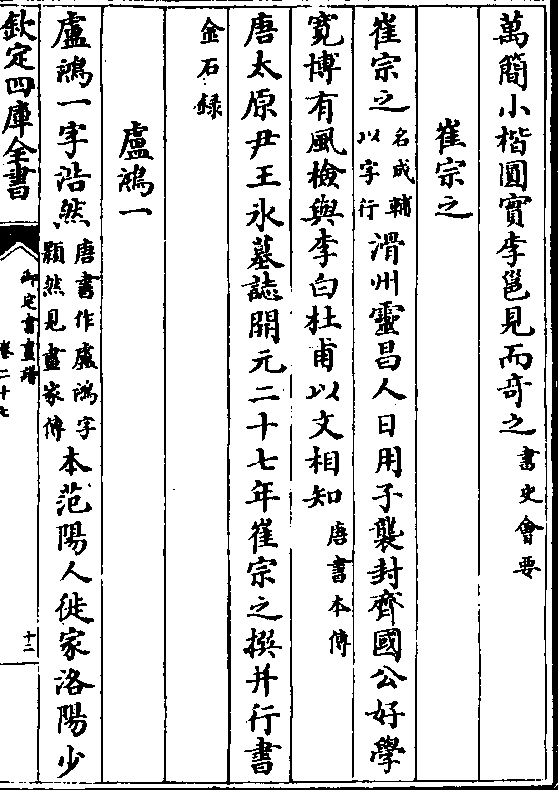 萬簡小楷圓實李邕見而奇之書史會要
崔宗之
崔宗之名成輔以字行滑州靈昌人日用子襲封齊國公好學
寛博有風檢與李白杜甫以文相知唐書本傳
唐太原尹王氷墓誌開元二十七年崔宗之撰并行書
金石録
盧鴻一
盧鴻一字浩然唐書作盧鴻字顥然見畫家傳本范陽人徙家洛陽少
欽定四庫全書
御定書畫譜
卷二十七
十三